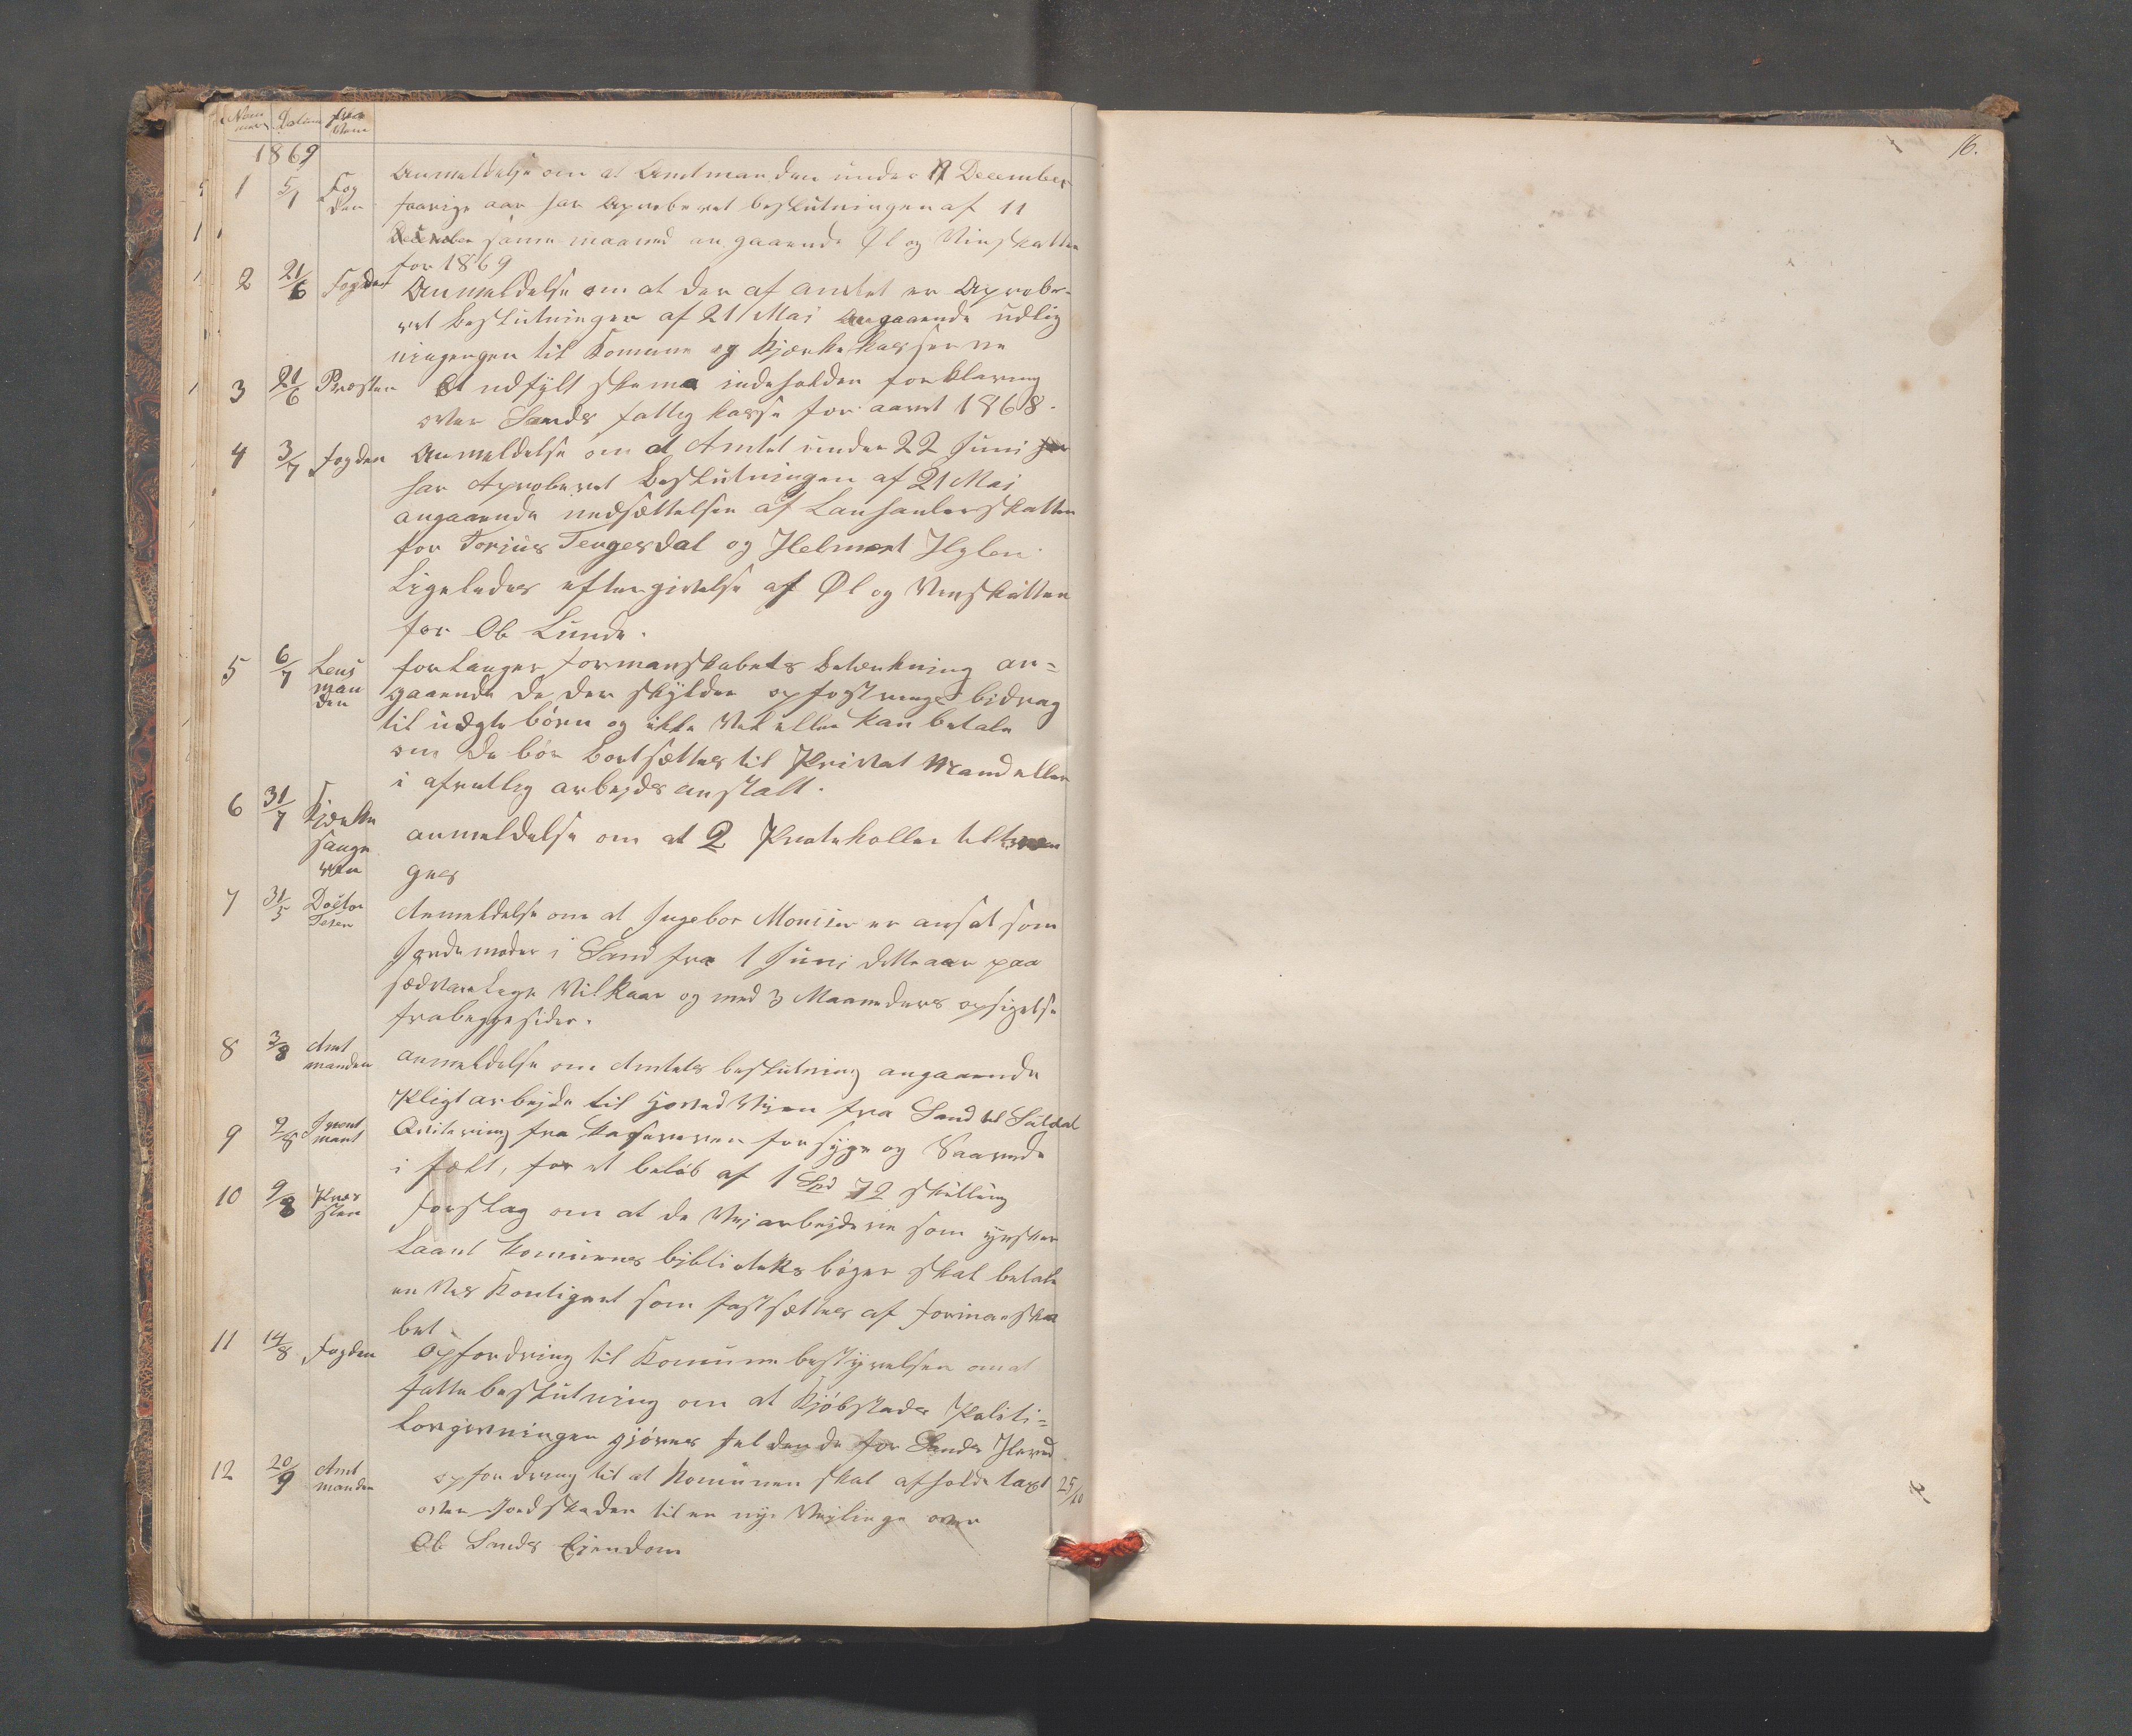 Num
mer Datum fra
Vem
16.
1869
1 5/1 Fog
den Anmeldelse om at Amtmanden under 17 December
forrige aar har Aproberet beslutningen af 11
samme maaned angaaende Øl og Vinskatten
for 1869
2 21/6 Fogden Anmeldelse om at der af amtet er Aprobe-
ret beslutningen af 21 Mai angaaende udlig
ningengen til Komune og Kjærkekasserne
3 21/6 Præsten Et udfylt skema indeholden forklaring
over Sands fattigkasse for aaret 1868.
4 3/7 Fogden Anmeldelse om at Amtet under 22 Juni
har Aproberet Beslutningen af 21 Mai
angaaende nedsættelsen af Lanhanlerskatten
for Torjus Tengesdal og Helmert Hylen
Ligeledes eftergivelse af Øl og Vinskatten
for Ob Lunde.
5 6/7 Lens
man
den forlanger formanskabets betænkning an=
gaaende de der skylder opfostrings bidrag
til uægte börn og ikke Vel eller kan betale
om de bör bortsættes til Privat Mand eller
i afentlig arbejdsanstalt.
6 31/7 Kjærke
sange
ren anmeldelse om at 2 Protokoller tiltræn
ges
7 31/5 Doctor
Anmeldelse om at Ingebor Monsen er ansat som
Jordemoder i Sand fra 1 Juni dette aar paa
sædvanlege Vilkaar og med 3 Maaneders opsigelse
fra begge sider.
8 3/8 Amt
manden anmeldelse om Amtets beslutning angaaende
Pligtarbejde til Hoved Vejen fra Sand til Suldal
9 9/8 Qvitering fra kassereren for syge og Saarede
i fælt, for et belöb af 1 Spd 72 skilling
10 9/8 Præs
sten forslag om at de Vejarbejderne som ynsker
laant Komunens bibliotheks böger skal betale
en Vis Kontigent som fastsættes af formanska
bet
11 14/8 Fogden Opfordring til Komunebestyrelsen om at
fatte beslutning om at Kjöbstads Politi=
Lovgivningen gjöres jeldende for Sands Hered
12 20/9 Amt
manden opfordring til at Komunen skal afholde taxt 25/10
over Jordskaden til en nye Vejlinge over
Ob Sands Ejendom